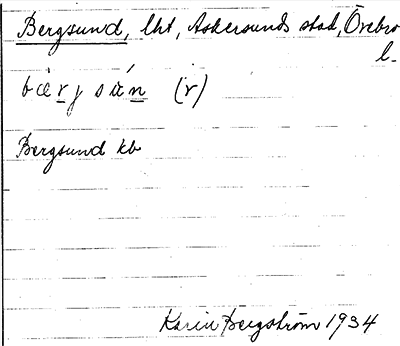 Bergsund, lht, Askersunds stad, Örebro
l.
bærj sún (r)
Bergsund kb
Karin Bergström 1934